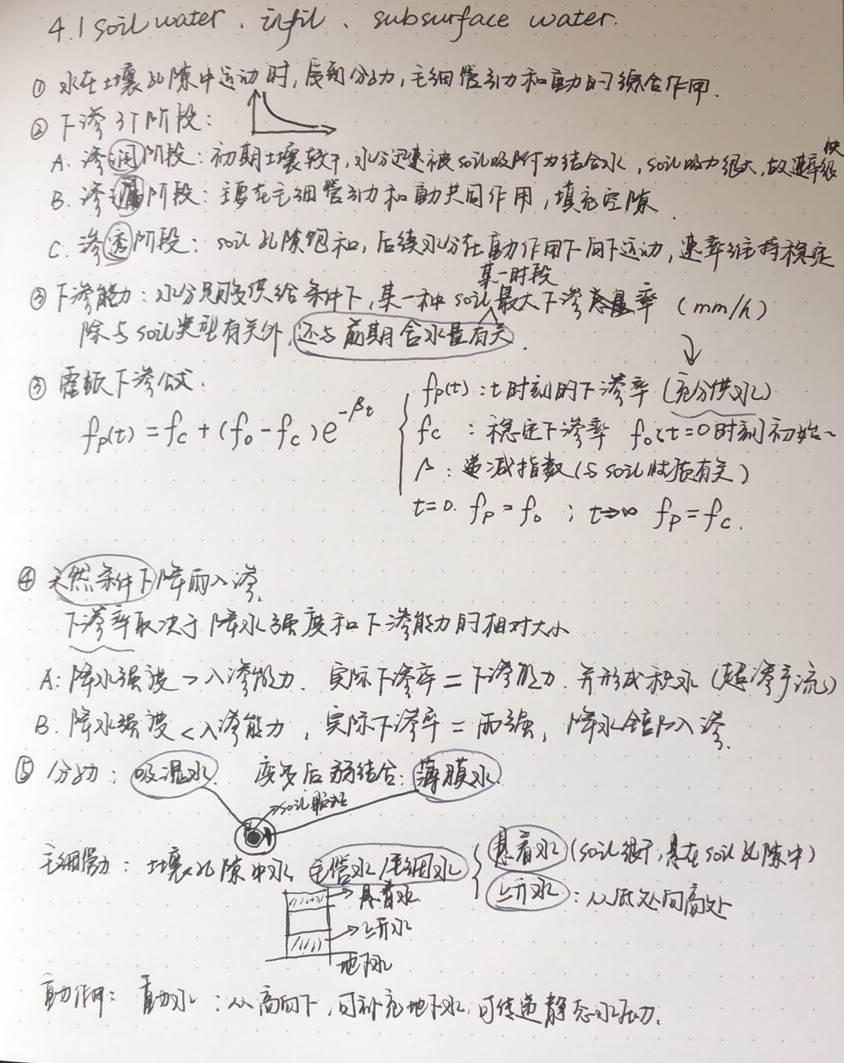 4.1 soil water、infil、subsurface water.
① 水在土壤孔隙中运动时,受到分子力,毛细管引力和重力的综合作用.
② 下渗3个阶段:
A. 渗润阶段:初期土壤较干,水分迅速被soil吸附为结合水,soil吸力很大,故速率很快
B. 渗漏阶段:主要在毛细管引力和重力共同作用,填充空隙.
C. 渗透阶段:soil孔隙饱和,后续水分在重力作用下向下运动,速率维持稳定
某一时段
③ 下渗能力:水分足够供给条件下,某一种soil最大下渗率 (mm/h)
除与soil类型有关外,还与前期含水量有关.
③ 霍顿下渗公式.
fp(t) = fc + (f0 - fc) e^-βt
fp(t):t时刻的下渗率(充分供水)
fc:稳定下渗率 f0:t=0时刻初始~
β:递减指数(与soil性质有关)
t=0. fp = f0 ; t→∞ fp = fc.
④ 天然条件下降雨入渗.
下渗率取决于降水强度和下渗能力的相对大小
A:降水强度 > 入渗能力. 实际下渗率 = 下渗能力. 并形成积水(超渗产流)
B. 降水强度 < 入渗能力, 实际下渗率 = 雨强, 降水全部入渗.
⑤ 分子力:吸湿水. 变多后弱结合:薄膜水.
→soil颗粒
毛细管力:土壤孔隙中水 毛管水/毛细水
悬着水(soil很干,悬在soil孔隙中)
上升水:从低处向高处
→悬着水
→上升水
地下水
重力作用:重力水:从高向下,可补充地下水,可传递静态水压力.